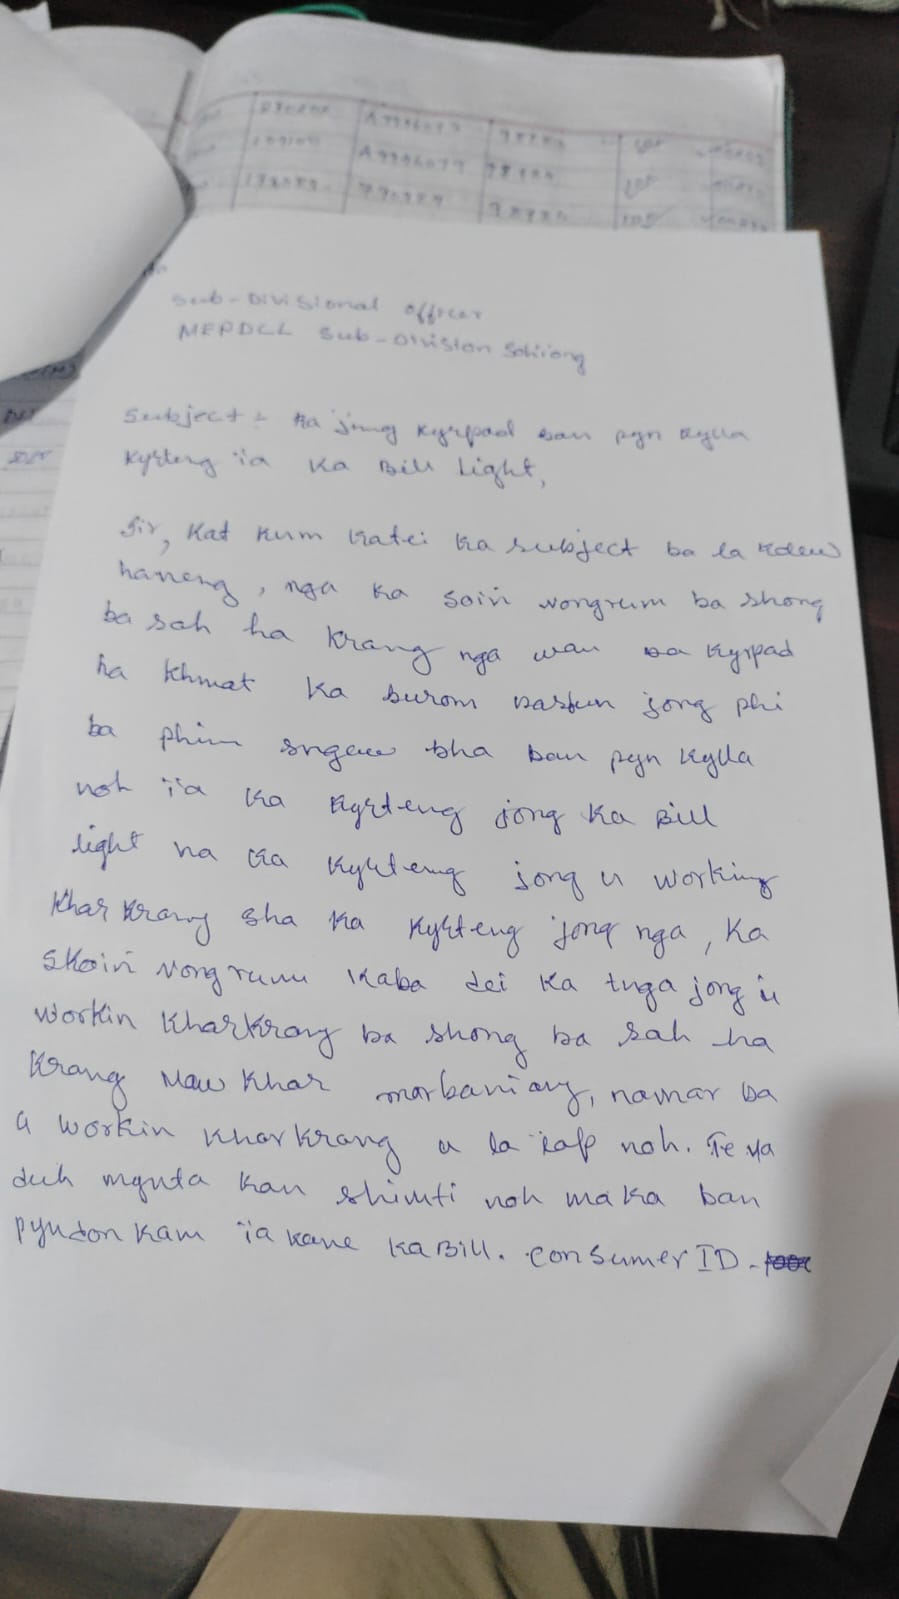 Sub-Divisional officer
MEPDCL Sub-Division Sohiong
Subject :- Ka jing kyrpad ban pyn kylla
kyrteng ïa ka Bill light,
Sir, Kat kum katei ka subject ba la kdew
haneng, nga ka Soin nongrum ba shong
ba sah ha Krang nga wan ba kyrpad
ha khmat ka burom jong phi
ba phim sngew bha ban pyn kylla
noh ïa ka kyrteng jong ka Bill
light na ka kyrteng jong u working
Kharkrang sha ka kyrteng jong nga, Ka
Skoin Nongrum kaba dei ka tnga jong u
Workin Kharkrang ba shong ba sah ha
Krang Maw Khar marbaniang, namar ba
u workin Kharkrang u la ïap noh. Te ya
duh mynta kan shimti noh ma ka ban
pyndon kam ïa kane ka Bill. Consumer ID -